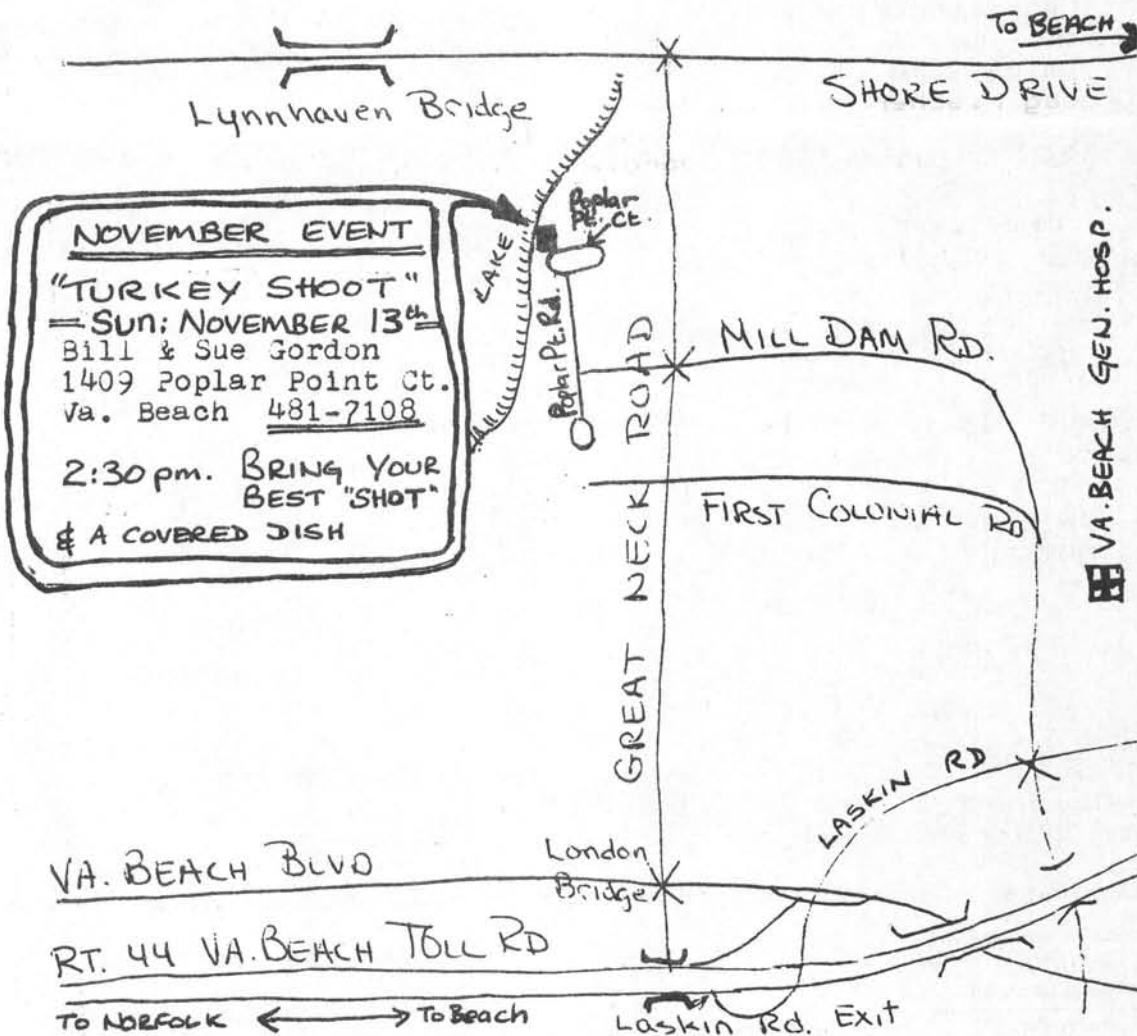 TO BEACH
SHORE DRIVE
Lynnhaven Bridge
NOVEMBER EVENT
"TURKEY SHOOT"
SUN: NOVEMBER 13th
Bill & Sue Gordon
1409 Poplar Point Ct.
Va. Beach 481-7108
2:30 pm. BRING YOUR
BEST "SHOT"
& A COVERED DISH
LAKE
Poplar
Pt. Ct.
Poplar Pt. Rd.
GREAT NECK ROAD
MILL DAM RD.
VA. BEACH GEN. HOSP.
FIRST COLONIAL RD
LASKIN RD
London
Bridge
VA. BEACH BLVD
RT. 44 VA. BEACH TOLL RD
TO NORFOLK
To Beach
Laskin Rd. Exit